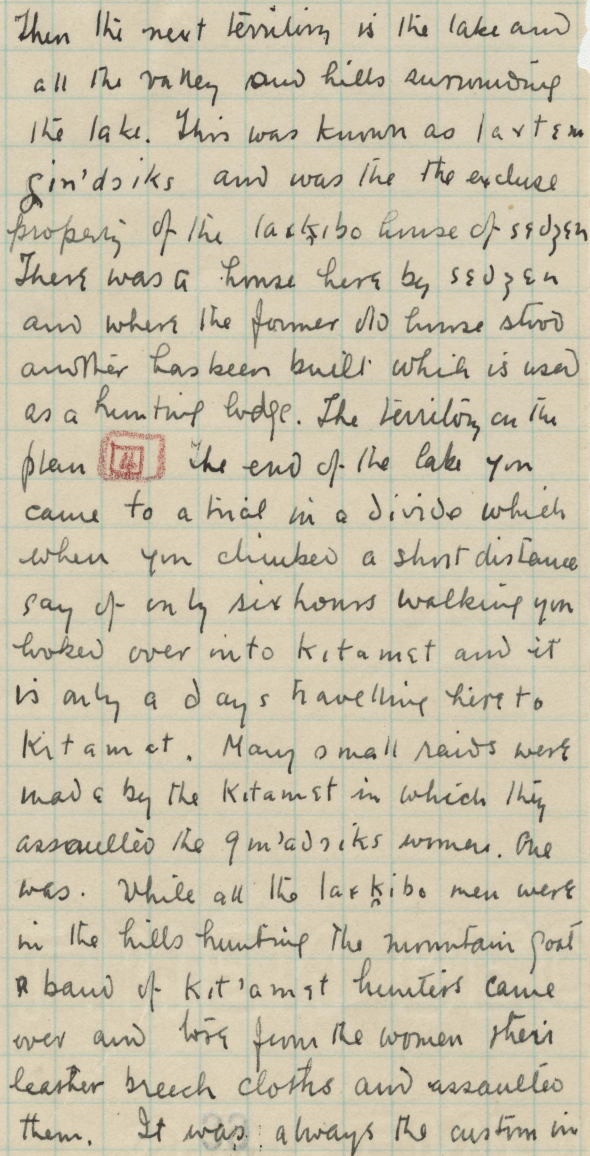 Then the next territory is the lake and
all the valley and hills surrounding
the lake. This was known as laxtɛm
gin'dsiks and was the the excluse
property of the laxḵibo house of sɛdzɛn
There was a house here by sɛdzɛn
and where the former old house stood
another has been built which is used
as a hunting lodge. The territory on the
plan The end of the lake you
came to a trial in a divide which
when you climbed a short distance
say of only six hours walking you
looked over into Kitamat and it
is only a days travelling here to
Kitamat. Many small raids were
made by the Kitamat in which they
assaulted the gin'adsiks women. One
was. While all the laxḵibo men were
in the hills hunting the mountain goat
A band of Kit'amat hunters came
over and tore from the women their
leather breech cloths and assaulted
them. It was always the custom in